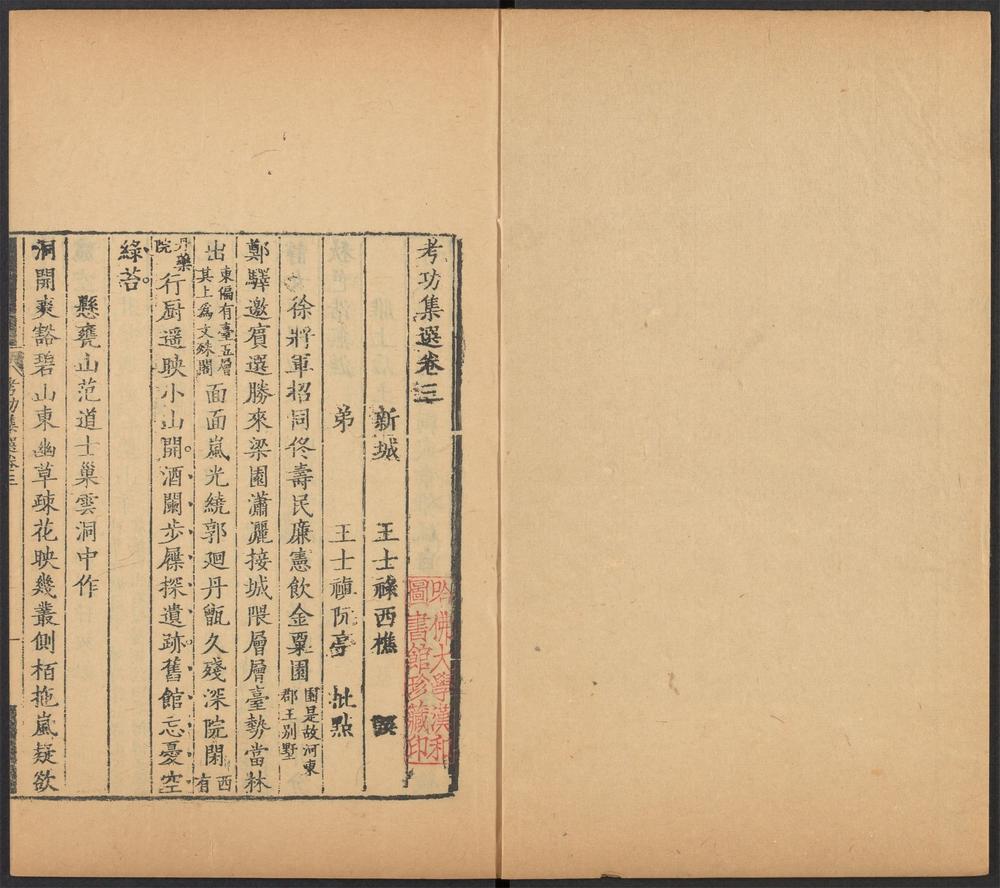 考功集選卷三
新城　王士祿西樵　撰
弟　王士禛阮亭　批點
徐將軍招同佟壽民廉憲飲金粟園 園是故河東郡王別墅
鄭驛邀賓選勝來梁園瀟灑接城隈層層臺勢當林
出 東偏有臺五層其上爲文殊閣 面面嵐光繞郭廻丹甑久殘深院閉 西有
丹藥院 行厨遥映小山開酒闌步屧探遺跡舊館忘憂空
綠苔
懸甕山范道士巢雲洞中作
洞開爽豁碧山東幽草疎花映幾叢側栢拖嵐疑欲
考功集選卷三
一
哈佛大學漢和
圖書館珍藏印